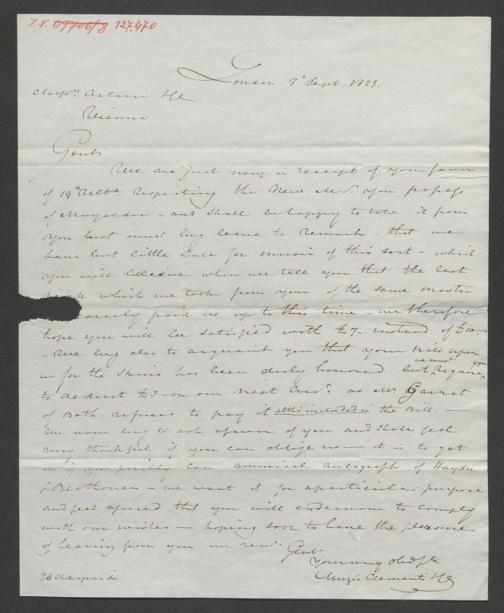 I.N. 69706/8 127.470
London 8th Sept. 1829.
Messrs. Artaria & Co
Vienna
Gent.
We are just now in receipt of your favor
of 19th Ulto. respecting the New M.S. you propose
of Mayseder - and shall be happy to take it from
you but must beg leave to remark - that we
have but little sale for music of this sort - which
you will believe when we tell you that the last
which we took from you of the same master
paid us up to this time - we therefore
hope you will be satisfied with £7.- instead of
- We beg also to acquaint you that your Bill upon
us for the same has been duly honored but
to deduct £3 - on our next as Mr Garret
of Bath refuses to pay it altho included in the Bill. -
We now beg to ask a favor of you and shall feel
very thankful if you can oblige us - it is to get
us if you possibly can a musical autograph of Haydn
& Beethoven - we want it for a particular purpose
and feel assured that you will endeavour to comply
with our wishes - hoping soon to have the pleasure
of hearing from you we rem.
Gent.
Your very obed. St.
Muzio Clementi & Co
26 Cheapside